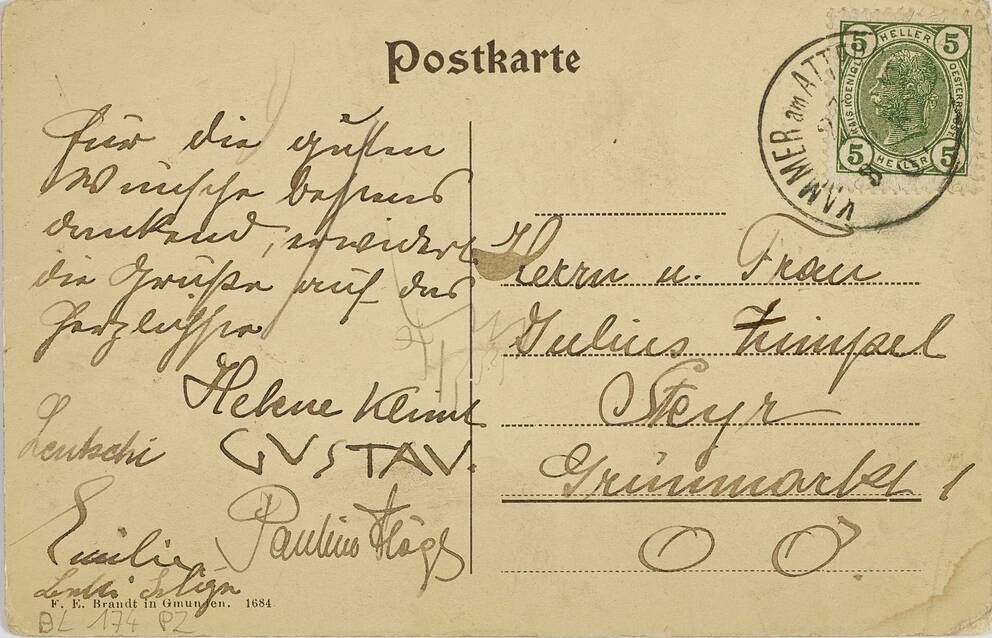 Postkarte
5 HELLER 5
KAIS. KOENIGL. OESTERR. POST
5 HELLER 5
KAMMER am ATTE
Für die guten
Wünsche bestens
dankend, erwidert
die Grüße auf das
Herzlichste
Helene Klimt
Leutschi
GUSTAV.
Emilie
Pauline Flöge
Herrn u. Frau
Julius Zimpel
Steyr
Grünmarkt 1
O Ö
F. E. Brandt in Gmunden. 1684
BL 174 PZ